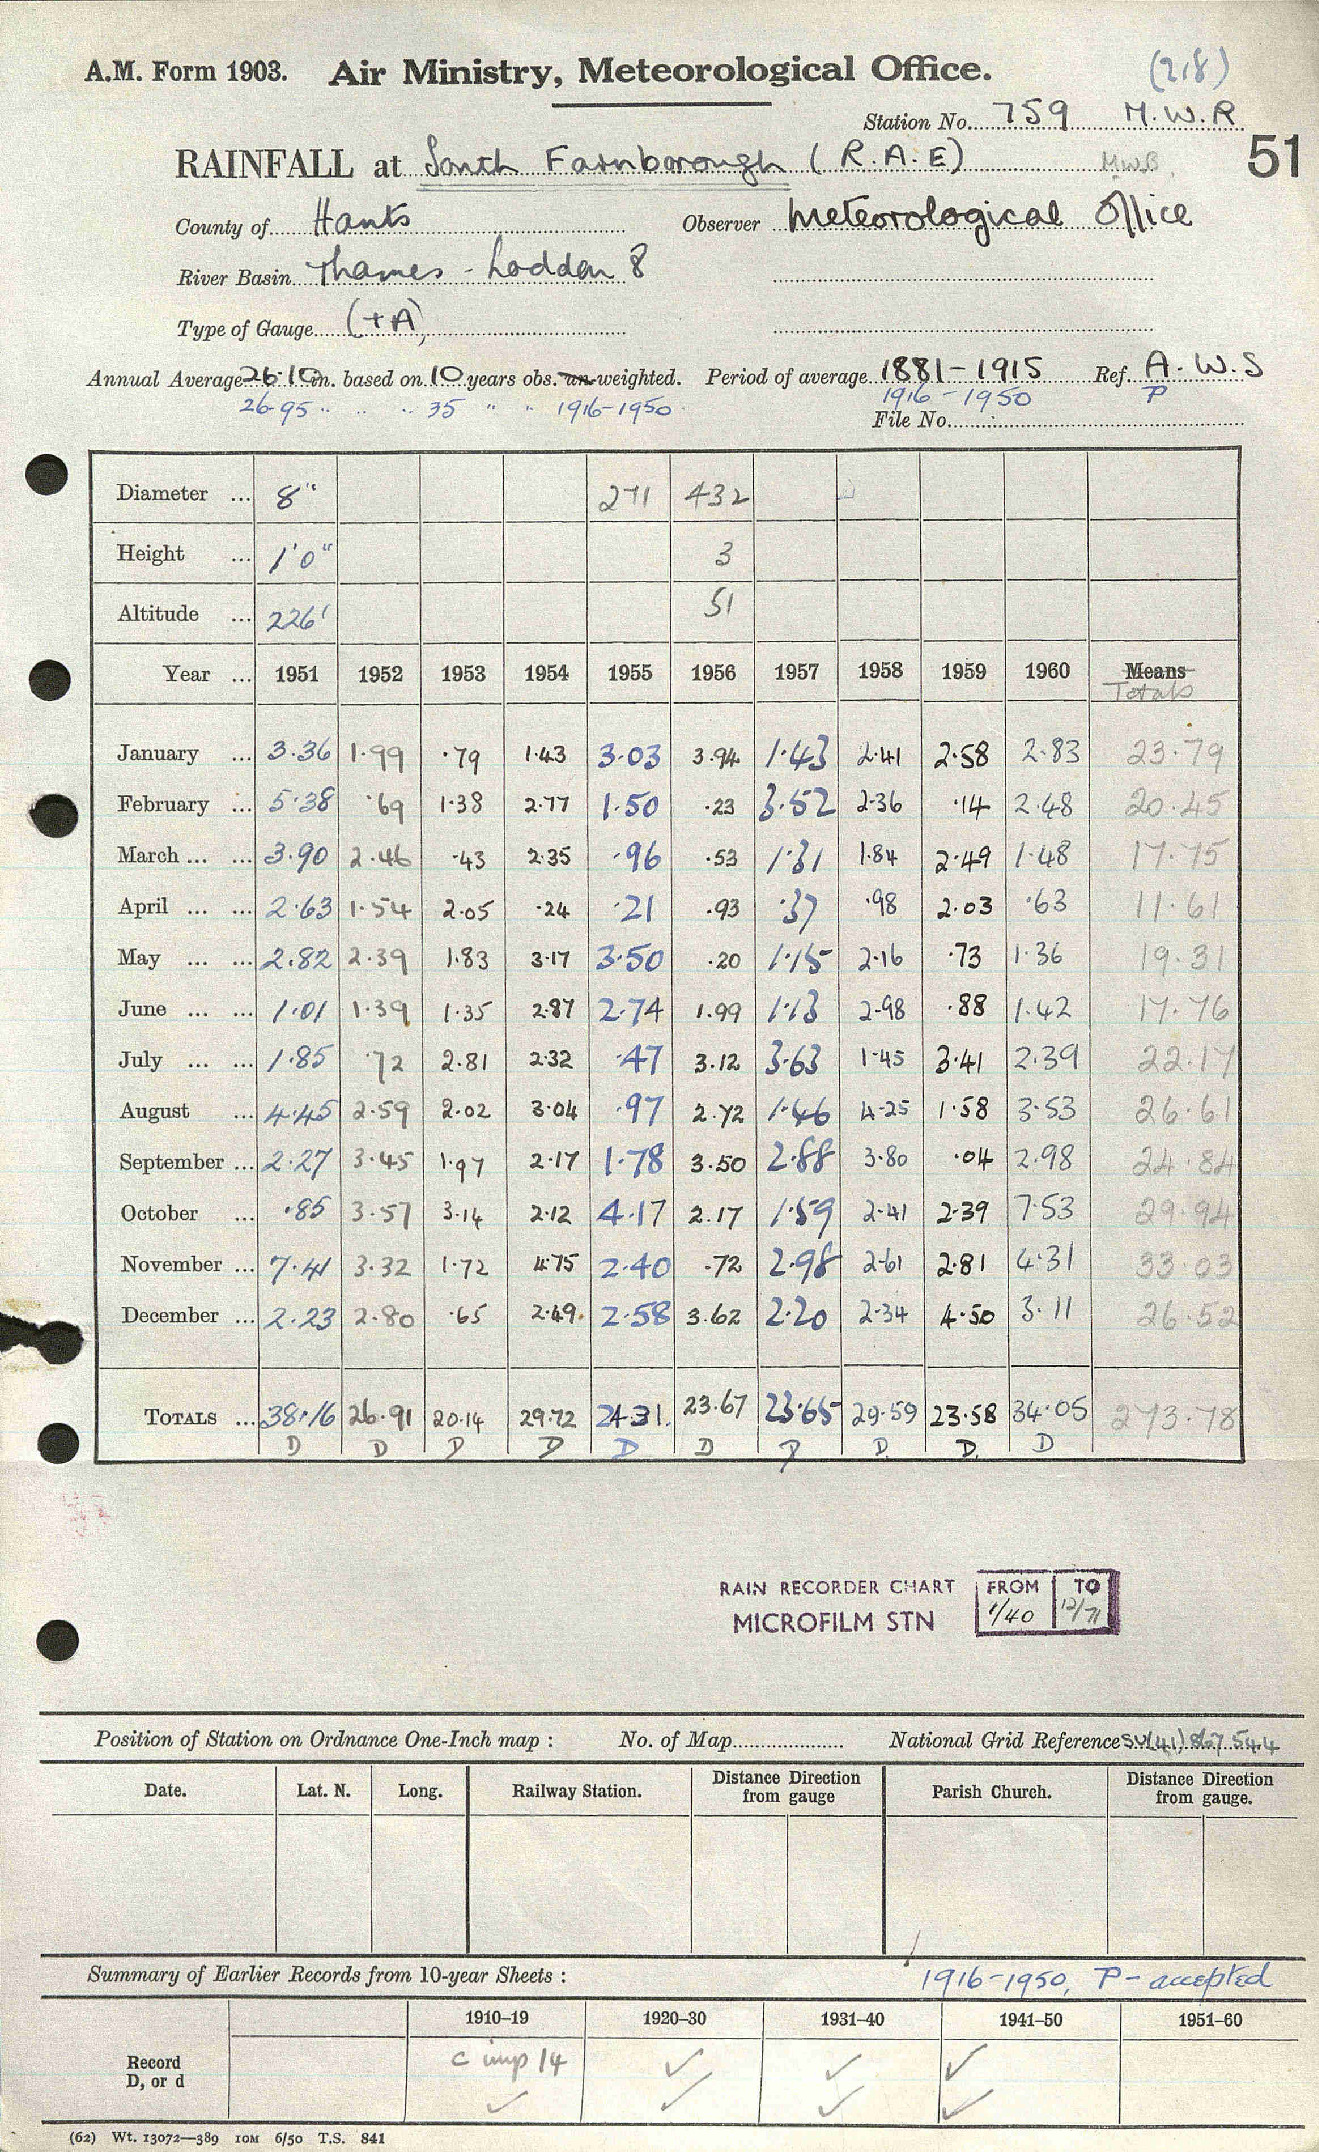 (218)
A.M. Form 1903. Air Ministry, Meteorological Office.
Station No. 759 M.W.R
RAINFALL at South Farnborough (R.A.E) M.W.B. 51
County of Hants Observer Meteorological Office
River Basin Thames - Loddon 8
Type of Gauge (+A)
Annual Average 26.10 in. based on 10 years obs. un-weighted. Period of average 1881-1915 Ref. A.W.S
26.95 " " " 35 " " 1916-1950 1916-1950 P
File No.
Diameter ... 8" 271 432
Height ... 1'0" 3
Altitude ... 226' 51
Year ... 1951 1952 1953 1954 1955 1956 1957 1958 1959 1960 Means
Totals
January ... 3.36 1.99 .79 1.43 3.03 3.94 1.43 2.41 2.58 2.83 23.79
February ... 5.38 .69 1.38 2.77 1.50 .23 3.52 2.36 .14 2.48 20.45
March ... ... 3.90 2.46 .43 2.35 .96 .53 1.31 1.84 2.49 1.48 17.75
April ... ... 2.63 1.54 2.05 .24 .21 .93 .37 .98 2.03 .63 11.61
May ... ... 2.82 2.39 1.83 3.17 3.50 .20 1.15 2.16 .73 1.36 19.31
June ... ... 1.01 1.39 1.35 2.87 2.74 1.99 1.13 2.98 .88 1.42 17.76
July ... ... 1.85 .72 2.81 2.32 .47 3.12 3.63 1.45 3.41 2.39 22.17
August ... 4.45 2.59 2.02 3.04 .97 2.72 1.46 4.25 1.58 3.53 26.61
September ... 2.27 3.45 1.97 2.17 1.78 3.50 2.88 3.80 .04 2.98 24.84
October ... .85 3.57 3.14 2.12 4.17 2.17 1.59 2.41 2.39 7.53 29.94
November ... 7.41 3.32 1.72 4.75 2.40 .72 2.98 2.61 2.81 4.31 33.03
December ... 2.23 2.80 .65 2.49. 2.58 3.62 2.20 2.34 4.50 3.11 26.52
TOTALS ... 38.16 26.91 20.14 29.72 24.31. 23.67 23.65 29.59 23.58 34.05 273.78
D D D D D D D D D. D
RAIN RECORDER CHART FROM TO
MICROFILM STN 1/40 12/71
Position of Station on Ordnance One-Inch map : No. of Map National Grid Reference SU(41) 867 544
Date. Lat. N. Long. Railway Station. Distance Direction from gauge Parish Church. Distance Direction from gauge.
Summary of Earlier Records from 10-year Sheets : 1916-1950, P-accepted
1910–19 1920–30 1931–40 1941–50 1951–60
Record c imp 14 ✓ ✓ ✓
D, or d ✓ ✓ ✓ ✓
(62) Wt. 13072—389 10M 6/50 T.S. 841